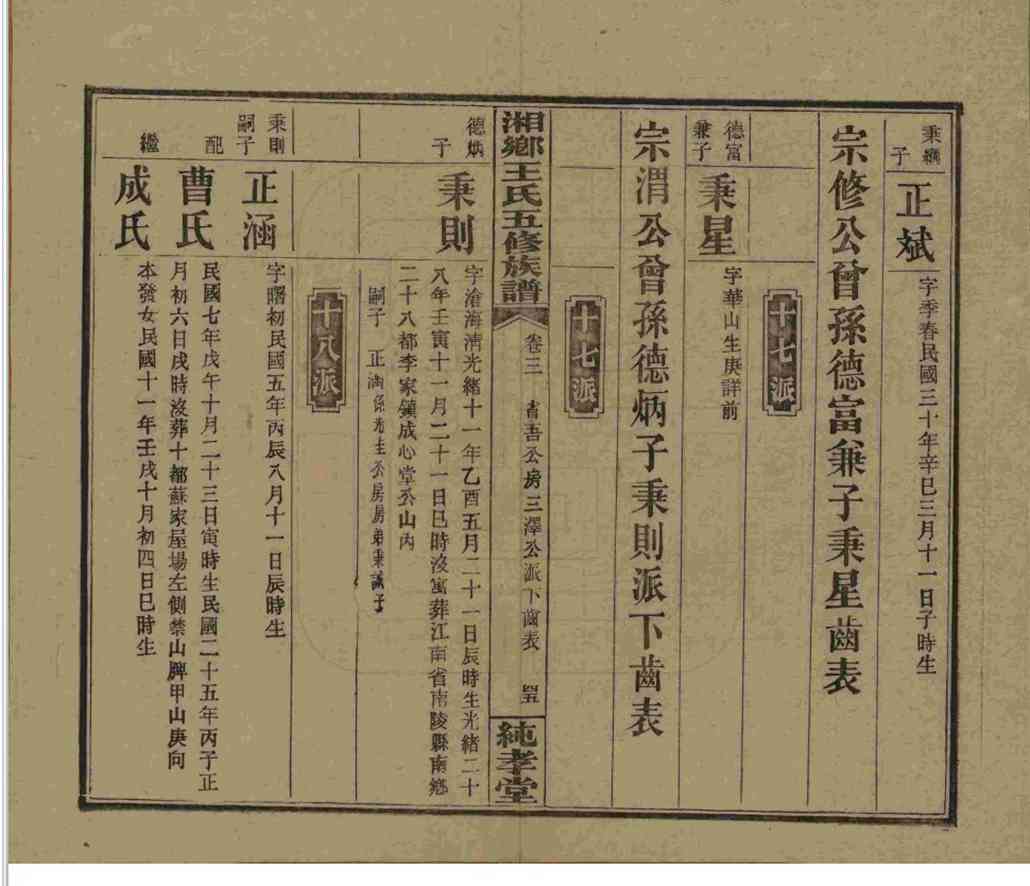 秉㵎子
正斌
字季春民國三十年辛巳三月十一日子時生
宗修公曾孫德富兼子秉星齒表
十七派
德富兼子
秉星
字華山生庚詳前
宗渭公曾孫德炳子秉則派下齒表
十七派
湘鄉王氏五修族譜
卷三
省吾公房三澤公派下齒表
純孝堂
德炳子
秉則
字滄海清光緒十一年乙酉五月二十一日辰時生光緒二十
八年壬寅十一月二十一日巳時沒寓葬江南省南陵縣南鄉
二十八都李家鎮成心堂公山內
嗣子
正涵係光生公房房弟秉誠子
十八派
秉則嗣子
正涵
字曙初民國五年丙辰八月十一日辰時生
配
曹氏
民國七年戊午十月二十三日寅時生民國二十五年丙子正
月初六日戌時沒葬十都蘇家屋場左側禁山脾甲山庚向
繼
成氏
本發女民國十一年壬戌十月初四日巳時生